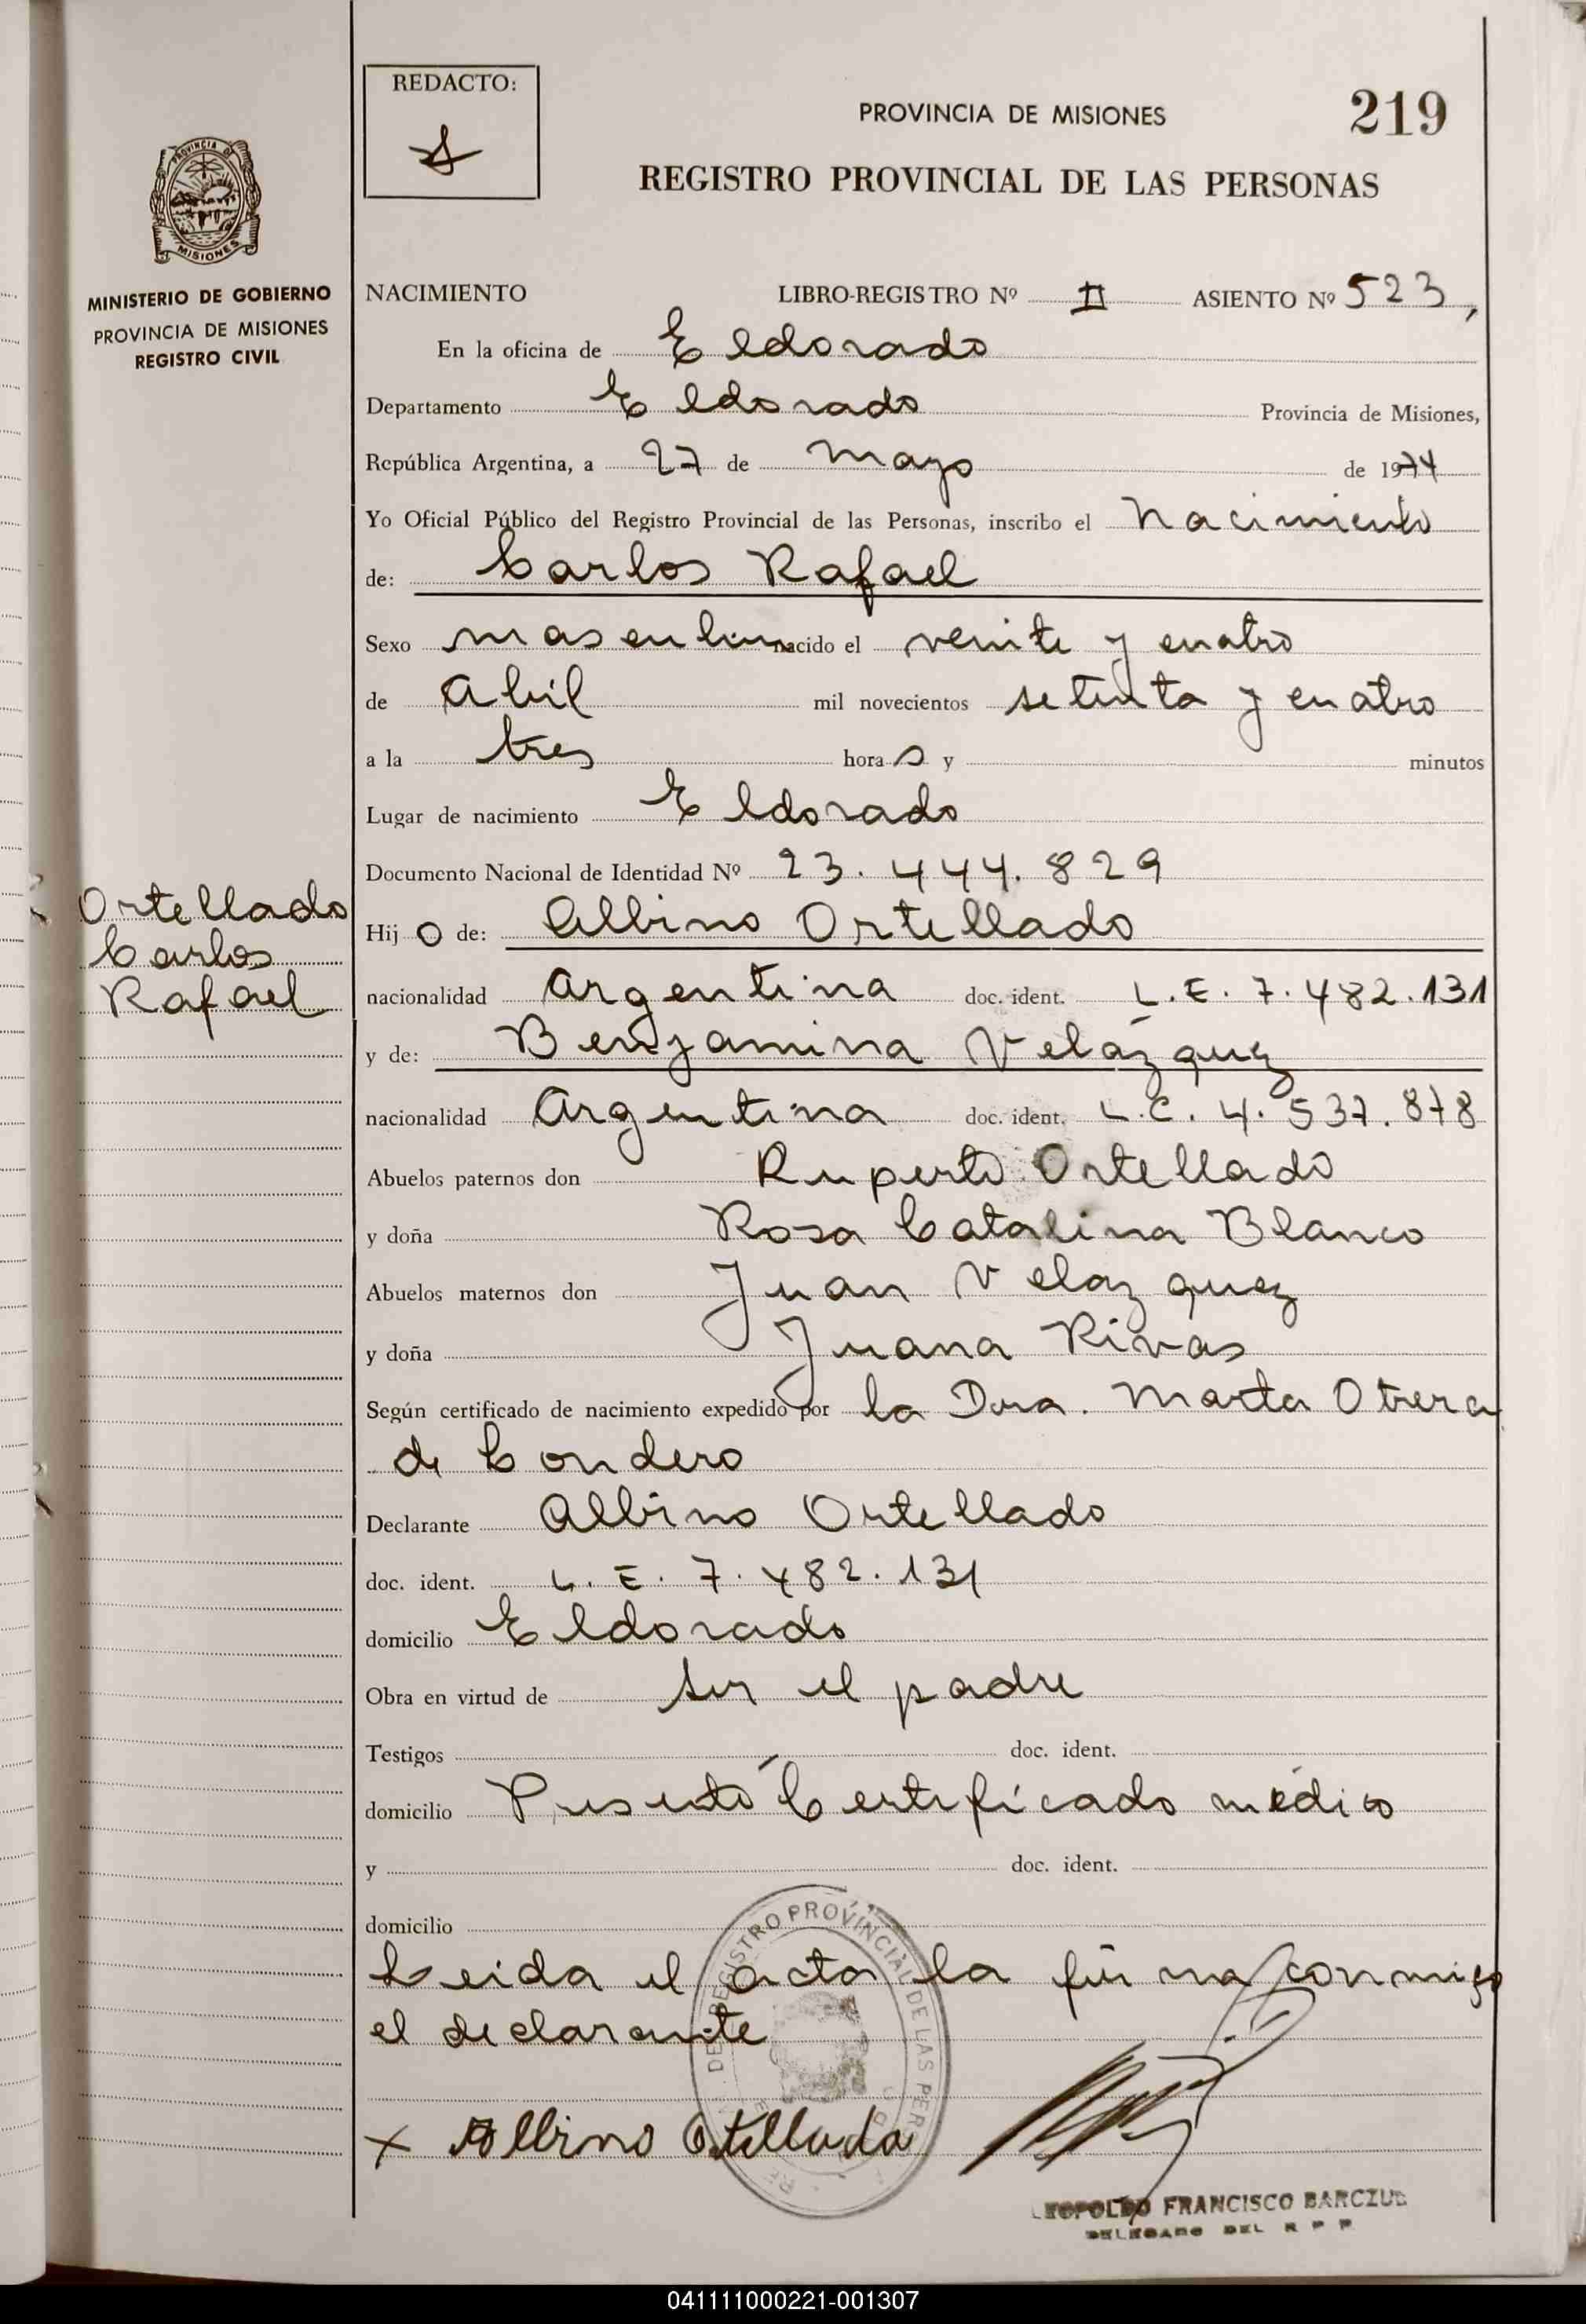 REDACTO:
PROVINCIA DE MISIONES
219
REGISTRO PROVINCIAL DE LAS PERSONAS
PROVINCIA DE
MISIONES
MINISTERIO DE GOBIERNO
PROVINCIA DE MISIONES
REGISTRO CIVIL
NACIMIENTO LIBRO-REGISTRO Nº II ASIENTO Nº 523,
En la oficina de Eldorado
Departamento Eldorado Provincia de Misiones,
República Argentina, a 27 de Mayo de 1974
Yo Oficial Público del Registro Provincial de las Personas, inscribo el Nacimiento
de: Carlos Rafael
Sexo masculino nacido el veinte y cuatro
de Abril mil novecientos setenta y cuatro
a la tres hora s y minutos
Lugar de nacimiento Eldorado
Documento Nacional de Identidad Nº 23.444.829
Ortellado
Carlos
Rafael
Hij o de: Albino Ortellado
nacionalidad Argentina doc. ident. L.E. 7.482.131
y de: Benjamina Velázquez
nacionalidad Argentina doc. ident. L.C. 4.537.878
Abuelos paternos don Ruperto Ortellado
y doña Rosa Catalina Blanco
Abuelos maternos don Juan Velazquez
y doña Juana Rivas
Según certificado de nacimiento expedido por la Dra. Marta Otrera
de Cordero
Declarante Albino Ortellado
doc. ident. L.E. 7.482.131
domicilio Eldorado
Obra en virtud de ser el padre
Testigos doc. ident.
domicilio Presentó Certificado médico
y doc. ident.
domicilio
Leida el acta la firma conmigo
el declarante
REGISTRO PROVINCIAL DE LAS PER
x Albino Ortellado
LEOPOLDO FRANCISCO BARCZUK
DELEGADO DEL R P P
041111000221-001307